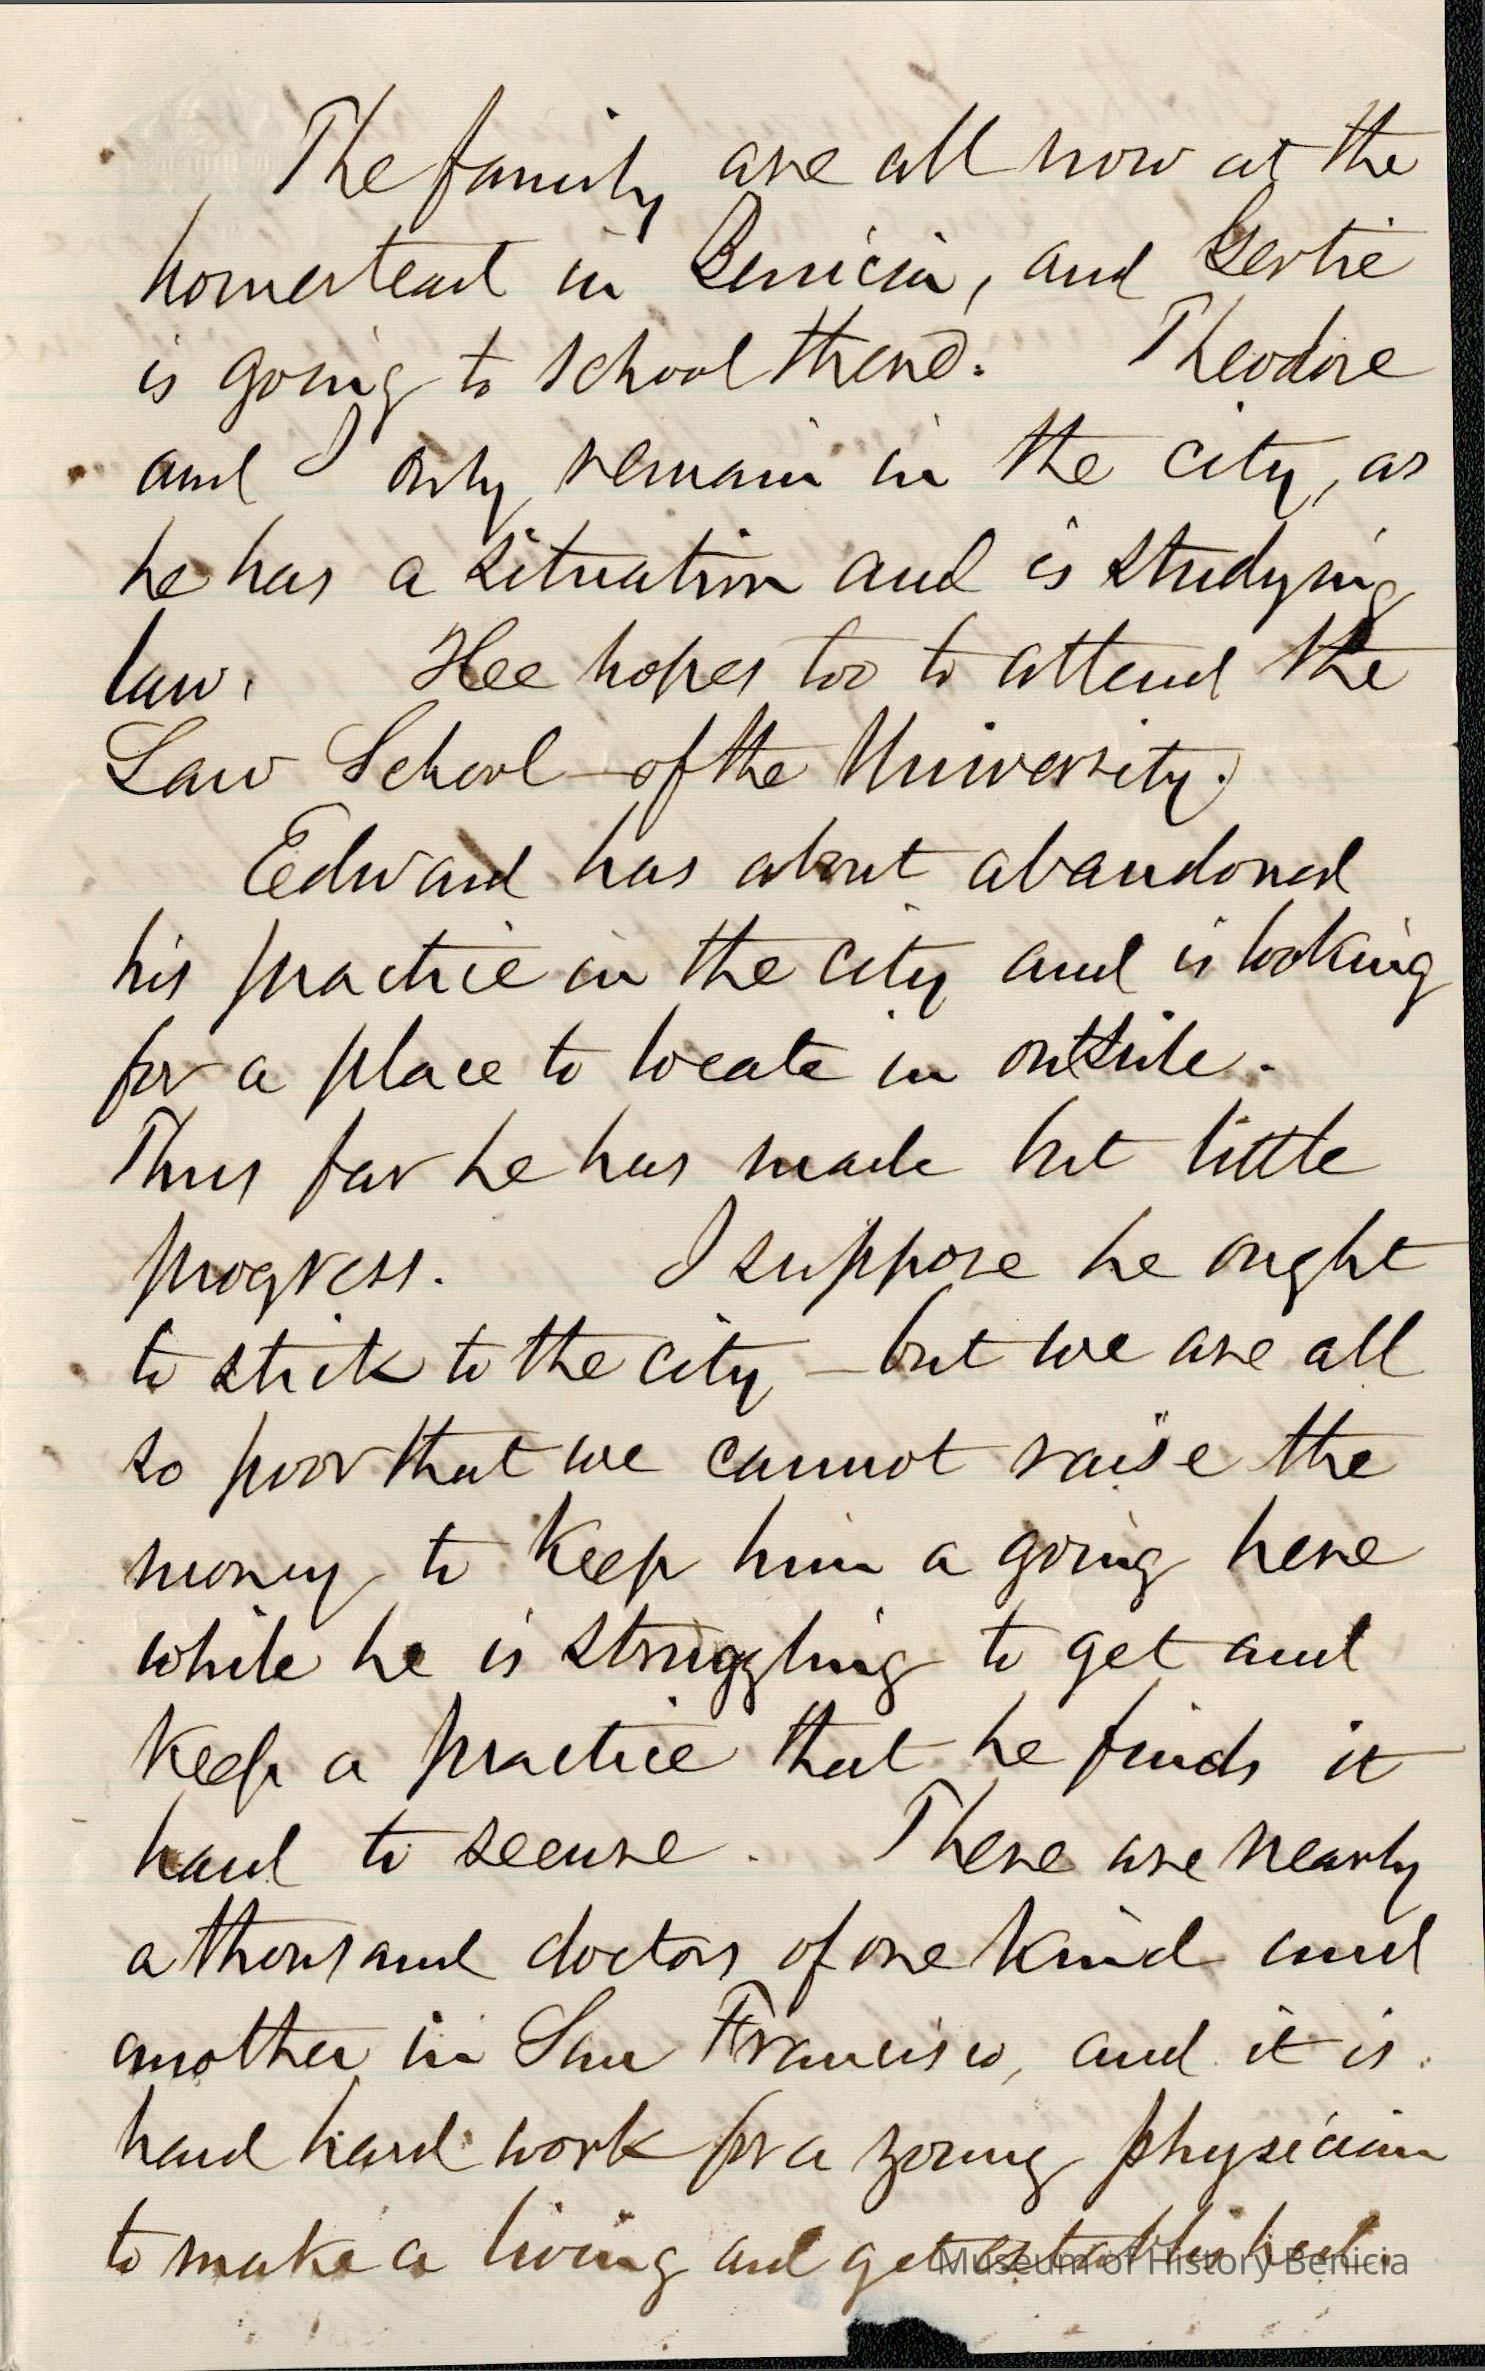 The family are all now at the
homestead in Benicia, and Gertie
is going to school there. Theodore
and I only remain in the city, as
he has a situation and is studying
law. Hee hopes too to attend the
Law School - of the University.
Edward has about abandoned
his practice in the city and is looking
for a place to locate in outside.
Thus far he has made but little
progress. I suppose he ought
to stick to the city - but we are all
so poor that we cannot raise the
money to keep him a going here
while he is struggling to get and
keep a practice that he finds it
hard to secure. There are nearly
a thousand doctors of one kind and
another in San Francisco, and it is
hard hard work for a young physician
to make a living and get established.
Museum of History Benicia